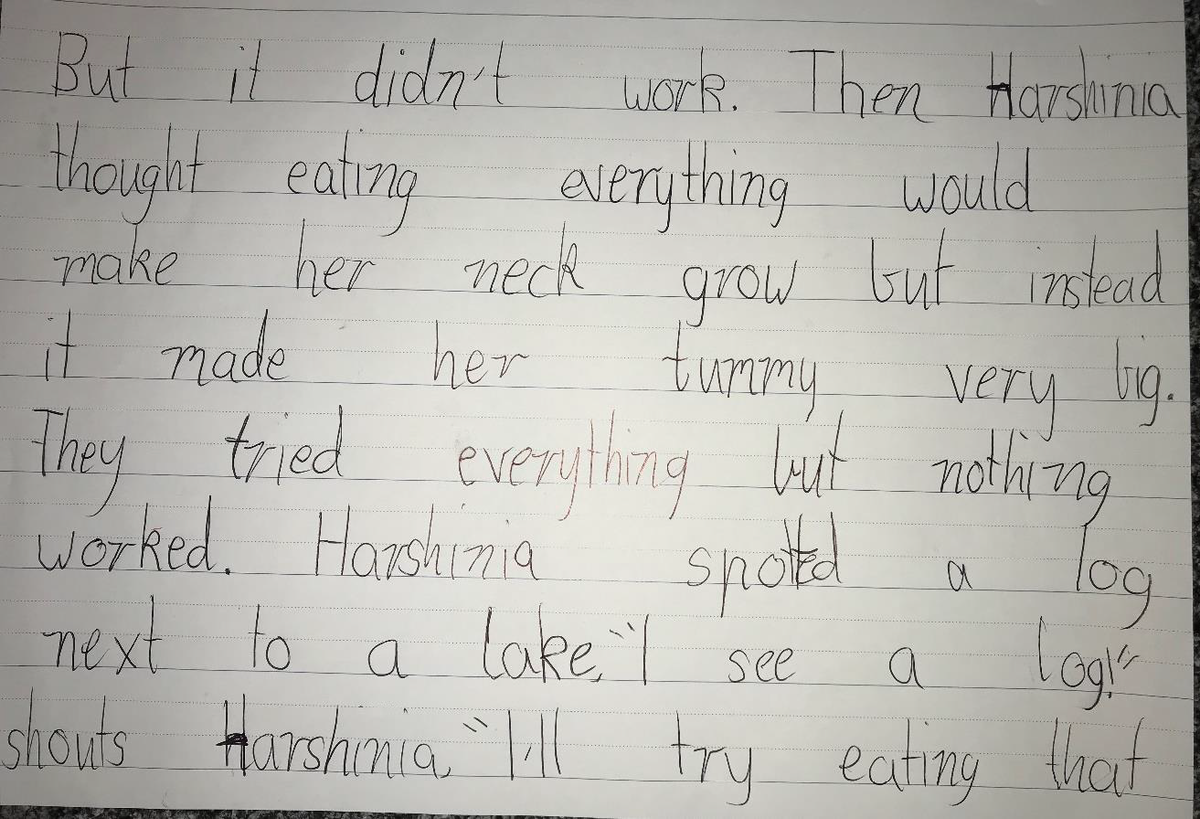 But it didn't work. Then Harshinia
thought eating everything would
make her neck grow but instead
it made her tummy very big.
They tried everything but nothing
worked. Harshinia spotted a log
next to a lake, "I see a log!"
shouts Harshinia, "I'll try eating that